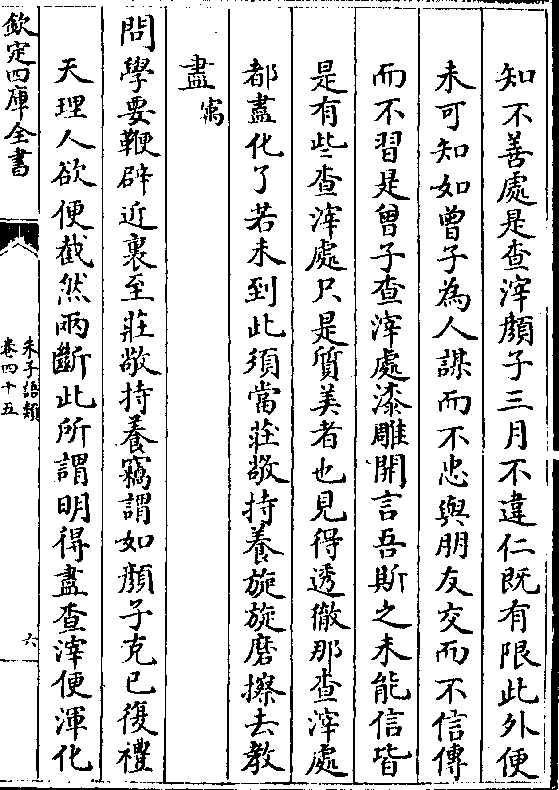 知不善處是查滓顔子三月不違仁既有限此外便
未可知如曾子為人謀而不忠與朋友交而不信傳
而不習是曾子查滓處漆雕開言吾斯之未能信皆
是有些查滓處只是質美者也見得透徹那查滓處
都盡化了若未到此須當莊敬持養旋旋磨擦去教
盡㝢
問學要鞭辟近裏至莊敬持養竊謂如顔子克已復禮
天理人欲便截然兩斷此所謂明得盡查滓便渾化
欽定四庫全書
朱子語類
卷四十五
六